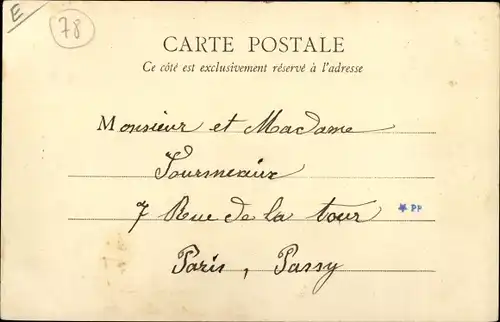 E
78
CARTE POSTALE
Ce côté est exclusivement réservé à l'adresse
Monsieur et Madame
Fourmeaux
7 Rue de la tour
★ PP
Paris, Passy